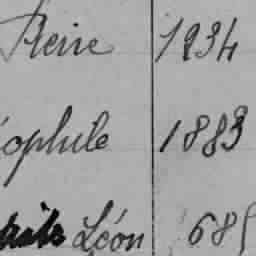 Reine 1934
ophile 1883
Léon 685